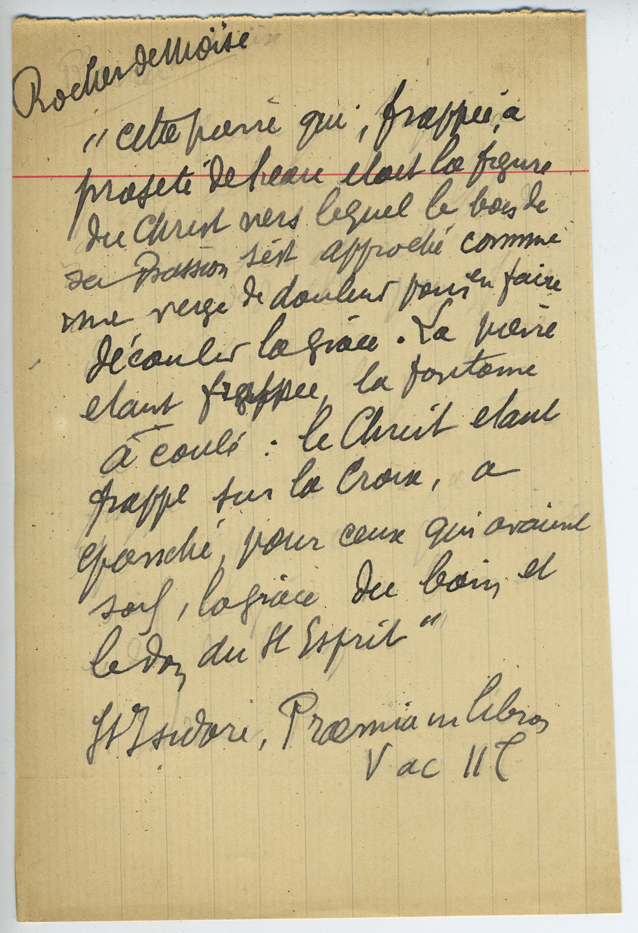 Rocher de Moïse
"cette pierre qui, frappée, a
projeté de l'eau etait la figure
du Christ vers lequel le bois de
sa Passion s'est approché comme
une verge de douleur pour en faire
découler la grâce. La pierre
etant frappée, la fontaine
à coulé : le Christ etant
frappé sur la Croix, a
épanché, pour ceux qui avaient
soif, la grâce du bain et
le don du St Esprit"
St Isidore, Proemia in libros
V ac